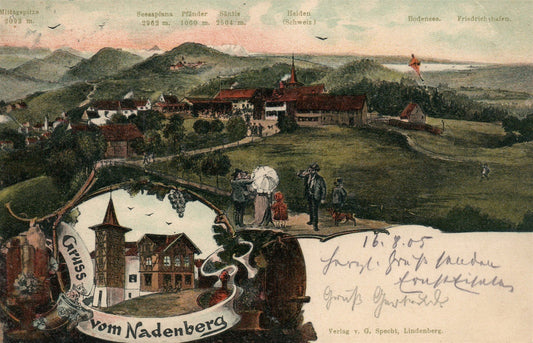 Mittagspitze
2092 m.
Scesaplana
2962 m.
Pfänder
1060 m.
Säntis
2504 m.
Heiden
(Schweiz)
Bodensee.
Friedrichshafen.
Gruss
vom Nadenberg
16.8.05
Herzl. Gruß senden
Gruß Gertrud
Verlag v. G. Specht, Lindenberg.